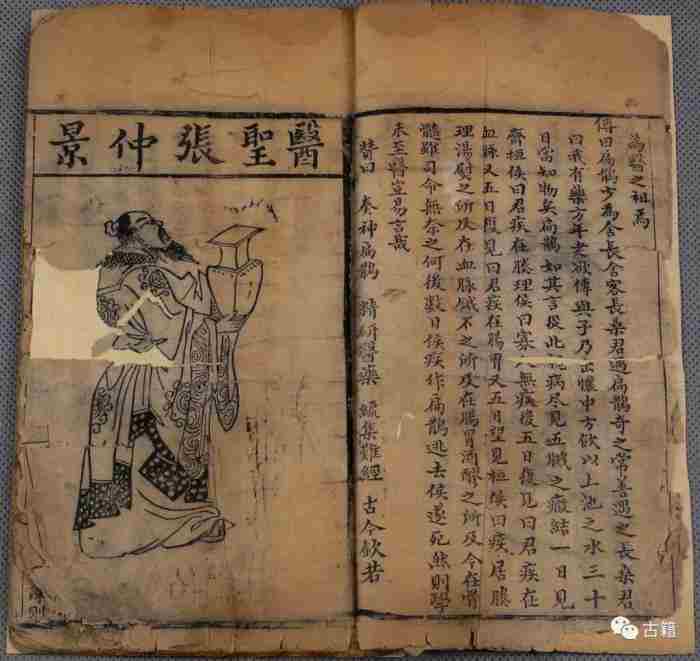 為醫之祖焉
傳曰扁鵲少為舍長舍客長桑君過扁鵲奇之常善遇之長桑君
曰我有藥方年老欲傳與子乃出懷中方飲以上池之水三十
日當知物矣扁鵲如其言從此視病尽見五臟之癥結一日見
齊桓侯曰君疾在腠理侯曰寡人無疾後五日復見曰君疾在
血脉又五日復見曰君疾在腸胃又五日望見桓侯曰疾居腠
理湯慰之所及在血脉鍼之所及在腸胃酒醪之所及今在骨
髓雖司命無奈之何後數日侯疾作扁鵲逃去侯遂死然則學
未至醫豈易言哉
贊曰 秦神扁鵲 精研醫藥 續集難經 古今欽若
醫聖張仲景
古籍